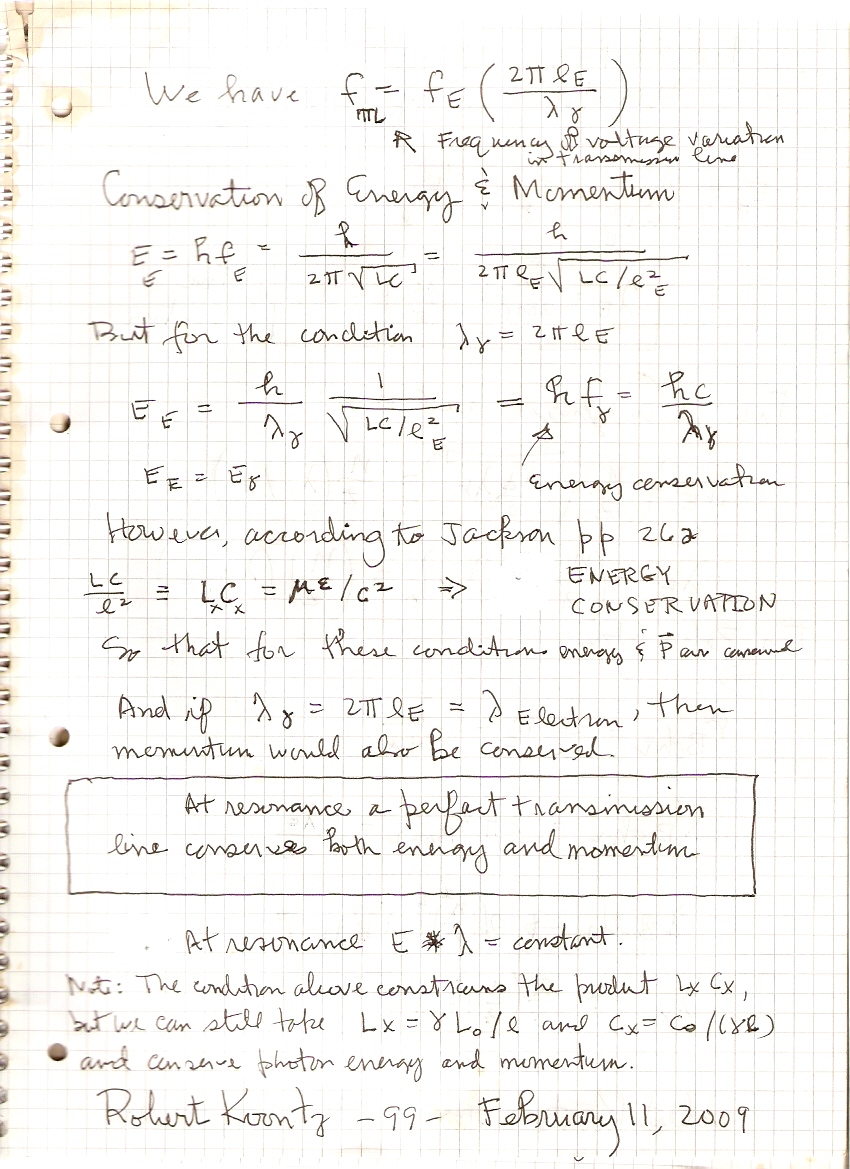 We have f_TTL = f_E ( 2π ℓ_E / λ_γ )
Frequency of voltage variation
in transmission line
Conservation of Energy & Momentum
E_E = h f_E = h / 2π√LC = h / 2π ℓ_E √LC/ℓ²_E
But for the condition λ_γ = 2π ℓ_E
E_E = h / λ_γ 1 / √LC/ℓ²_E = h f_γ = hc / λ_γ
E_E = E_γ Energy conservation
However, according to Jackson pp 262
LC / ℓ² ≡ L_x C_x = με/c² ⇒ ENERGY
CONSERVATION
So that for these conditions energy & p⃗ are conserved
And if λ_γ = 2π ℓ_E = λ Electron, then
momentum would also be conserved.
At resonance a perfect transmission
line conserves both energy and momentum
At resonance E * λ = constant.
Note: The condition above constrains the product Lx Cx,
but we can still take Lx = γ L₀/ℓ and Cx = C₀/(γℓ)
and conserve photon energy and momentum.
Robert Koontz - 99 - February 11, 2009